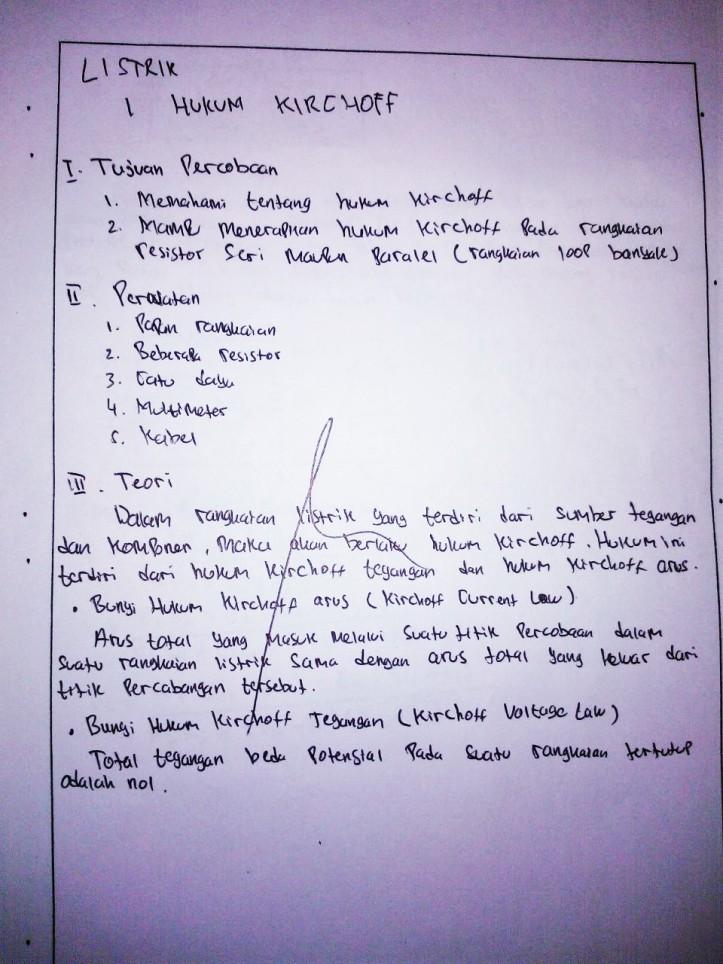 LISTRIK
1 HUKUM KIRCHOFF
I. Tujuan Percobaan
1. Memahami tentang hukum Kirchoff
2. Mampu menerapkan hukum Kirchoff Pada rangkaian
resistor Seri Maupun Paralel (rangkaian loop banyak)
II. Peralatan
1. Papan rangkaian
2. Beberapa resistor
3. Catu daya
4. Multimeter
5. Kabel
III. Teori
Dalam rangkaian listrik yang terdiri dari sumber tegangan
dan Komponen, Maka akan berlaku hukum Kirchoff. Hukum ini
terdiri dari hukum Kirchoff tegangan dan hukum Kirchoff arus.
• Bunyi Hukum Kirchoff arus (Kirchoff Current Law)
Arus total yang Masuk Melalui Suatu titik Percobaan dalam
Suatu rangkaian listrik Sama dengan arus total yang keluar dari
titik Percabangan tersebut.
• Bunyi Hukum Kirchoff Tegangan (Kirchoff Voltage Law)
Total tegangan beda Potensial Pada Suatu rangkaian tertutup
adalah nol.